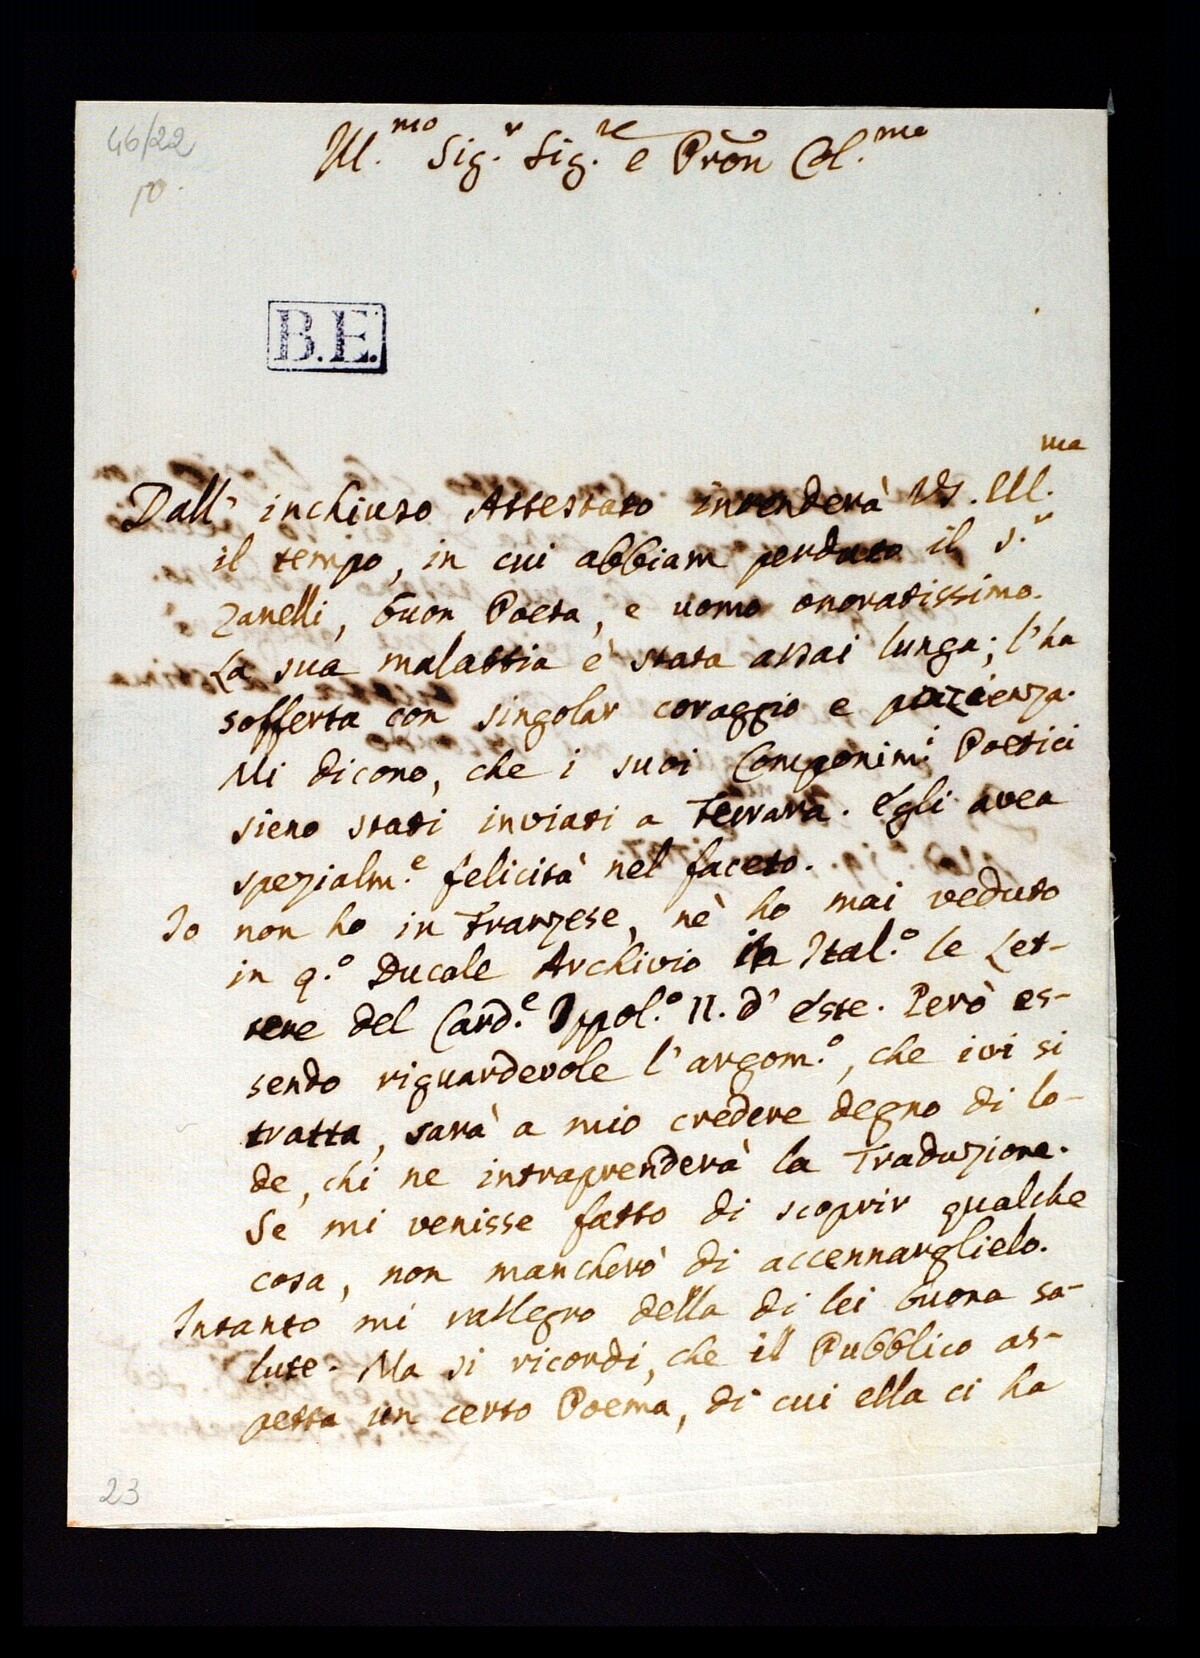 46/22
10.
Ill.mo Sig.r Sig.re e Pron Col.mo
B.E.
Dall' inchiuso Attestato intenderà VS. Ill.ma
il tempo, in cui abbiam perduto il S.r
Zanelli, buon Poeta, e uomo onoratissimo.
La sua malattia è stata assai lunga; l'ha
sofferta con singolar coraggio e pazienza.
Mi dicono, che i suoi Componim.i Poetici
sieno stati inviati a Ferrara. Egli avea
spezialm.e felicità nel faceto.
Io non ho in Franzese, nè ho mai veduto
in q.o Ducale Archivio in Ital.o le Let-
tere del Card.e Ippol.o II. d' Este. Però es-
sendo riguardevole l' argom.o, che ivi si
tratta, sarà a mio credere degno di lo-
de, chi ne intraprenderà la Traduzione.
Se mi venisse fatto di scoprir qualche
cosa, non mancherò di accennarglielo.
Intanto mi rallegro della di lei buona sa-
lute. Ma si ricordi, che il Pubblico as-
petta un certo Poema, di cui ella ci ha
23